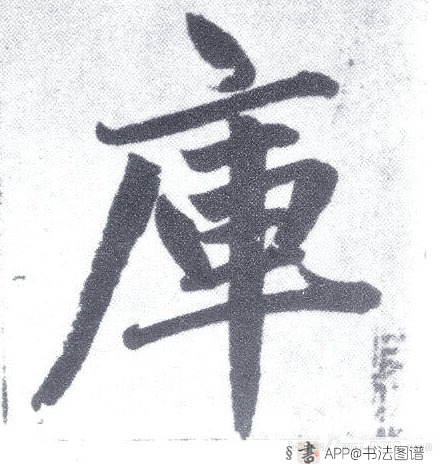 庫
§ 書 APP@书法图谱